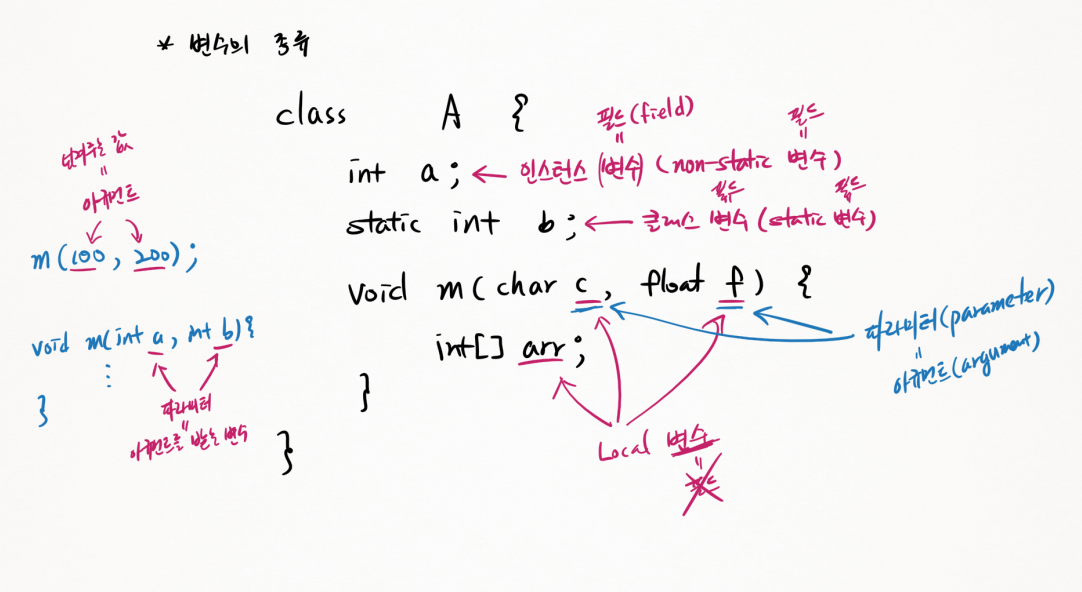 * 변수의 종류
class A {
필드(field)
=
필드
=
int a; ← 인스턴스 (변수) (non-static 변수)
필드
필드
static int b; ← 클래스 변수 (static 변수)
void m( char c, float f ) {
int[] arr;
}
}
Local 변수
=
필드
파라미터(parameter)
=
아규먼트(argument)
넘겨주는 값
=
아규먼트
m(100, 200);
void m(int a, int b){
⋮
}
파라미터
=
아규먼트를 받는 변수